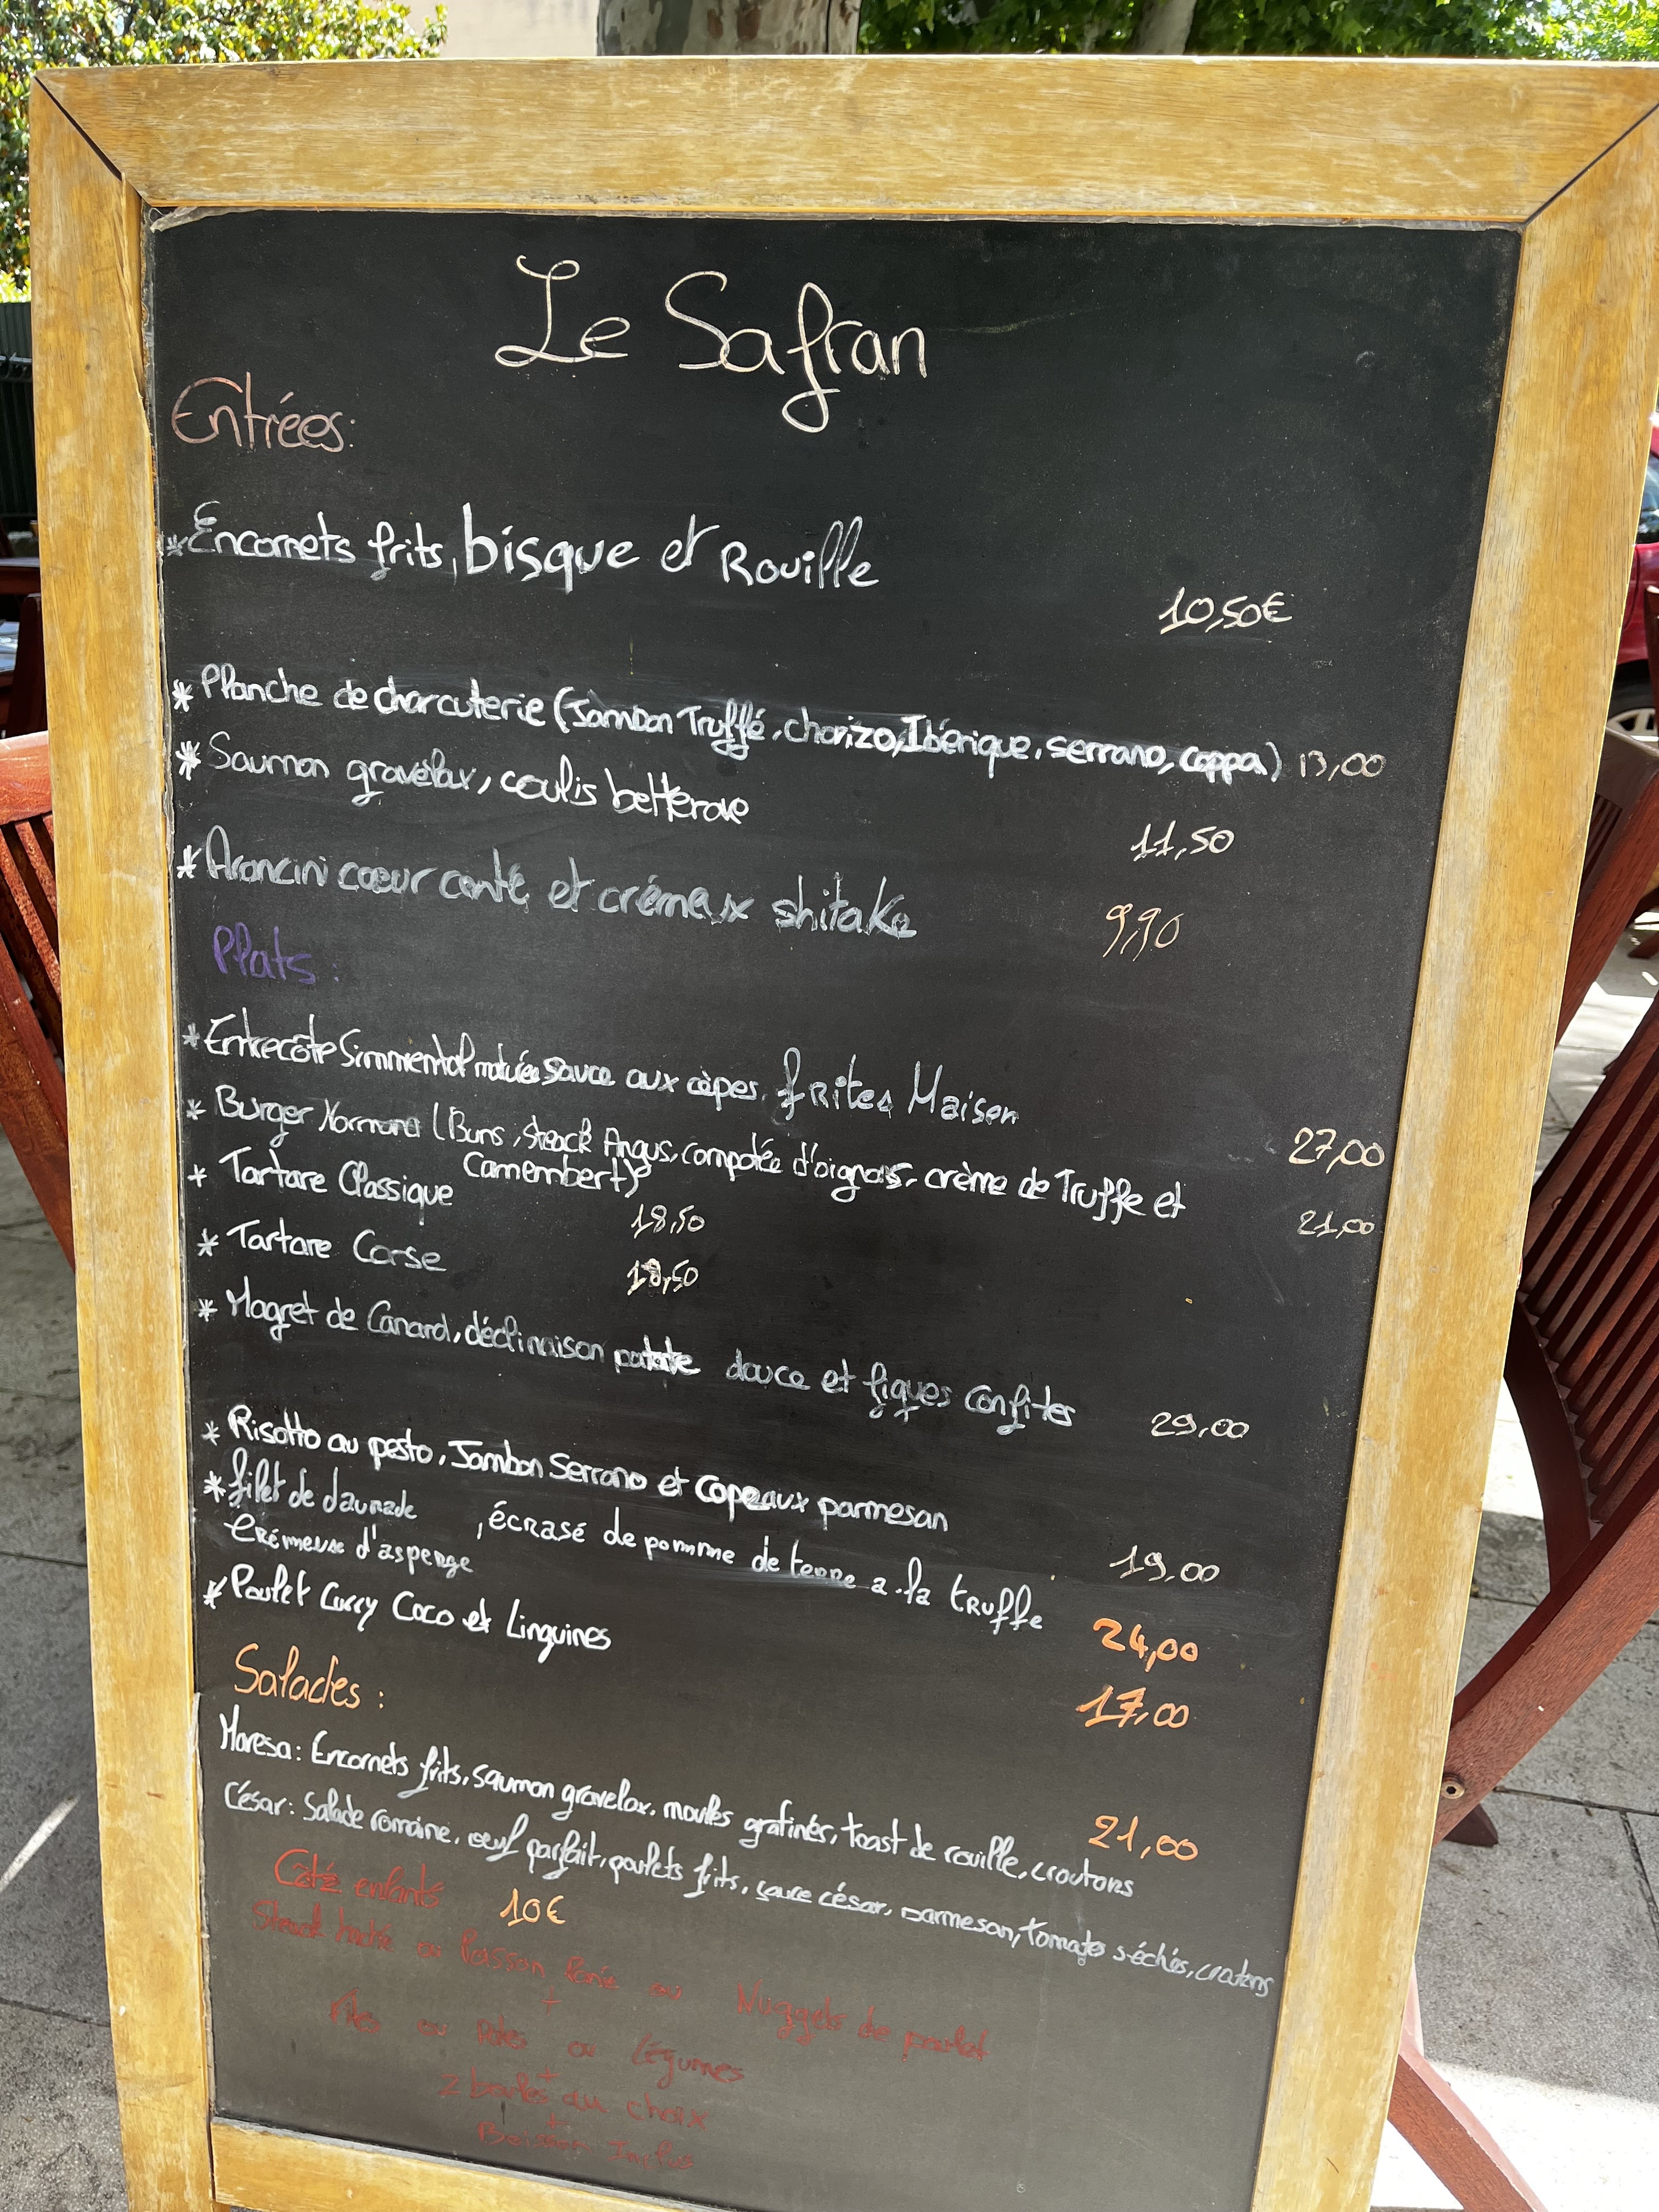 Le Safran
Entrées:
*Encornets frits, bisque et Rouille
10,50€
* Planche de charcuterie (Jambon Truffé, chorizo, Ibérique, serrano, coppa) 13,00
* Saumon gravelax, coulis betterave
11,50
* Arancini cœur conté et crémeux shitake 9,90
Plats:
* Entrecôte Simmental maturée sauce aux cèpes, frites Maison
27,00
* Burger Normand (Buns, steack Angus, compotée d'oignons, crème de Truffe et
Camembert) 21,00
* Tartare Classique 18,50
* Tartare Corse 18,50
* Magret de Canard, déclinaison patate douce et figues confites 29,00
* Risotto au pesto, Jambon Serrano et Copeaux parmesan
19,00
* filet de daurade , écrasé de pomme de terre a la truffe
crémeuse d'asperge 24,00
* Poulet Curry Coco et Linguines
17,00
Salades:
Maresa: Encornets frits, saumon gravelax, moules gratinés, toast de rouille, croutons
21,00
César: Salade romaine, oeuf parfait, poulets frits, sauce césar, parmesan, tomates séchés, croutons
Côté enfants 10€
Steack haché ou Poisson Pané ou Nuggets de poulet
+
Frites ou Pates ou Légumes
+
2 boules au choix
+
Boisson